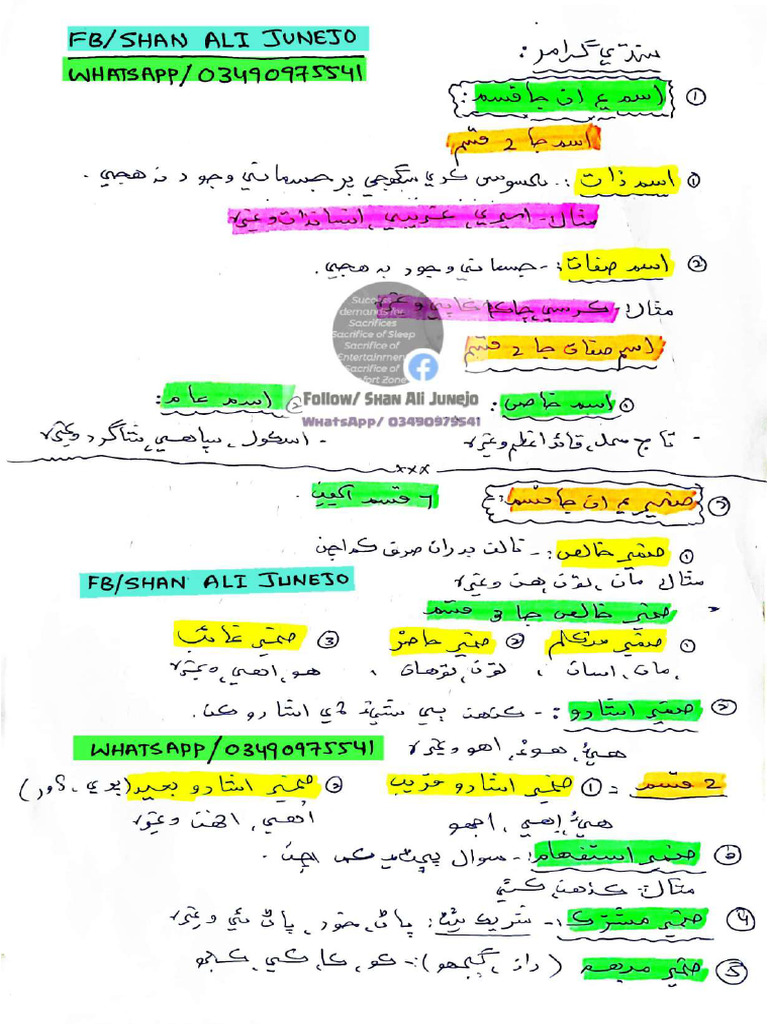 FB/SHAN ALI JUNEJO
WHATSAPP/03490975541
سنڌي گرامر:
① اسم ۽ ان جا قسم:
اسم جا 2 قسم
① اسم ذات: محسوس ڪري سگهجي پر جسماني وجود نه هجي.
مثال: اميري، غريبي، انسانذات وغيره
② اسم صفات: - جسماني وجود به هجي.
مثال: ڪرسي، چاڪ، ڪاپي وغيره
اسم صفات جا 2 قسم
Success demands for Sacrifices
Sacrifice of Sleep
Sacrifice of Entertainment
Sacrifice of Comfort Zone
Follow/ Shan Ali Junejo
WhatsApp/ 03490979541
① اسم خاص: ② اسم عام:
- تاج محل، قائد اعظم وغيره - اسڪول، سپاهي، شاگرد وغيره
xxx
② ضمير ۽ ان جا قسم: 6 قسم آهين.
① ضمير خالص: - نالت بدران صرف ڪم اچن
مثال: مان، تون، هن وغيره
FB/SHAN ALI JUNEJO
ضمير خالص جا 3 قسم
① ضمير متڪلم ② ضمير حاضر ③ ضمير غائب
مان، اسان، تون، توهان، هو، اهي، وغيره
② ضمير اشارو: - ڪنهن ٻي شيءِ ڏي اشارو ڪن.
هيءُ، هوءُ، اهو وغيره
WHATSAPP/03490975541
2 قسم = ① ضمير اشارو قريب ② ضمير اشارو بعيد (پري، ڏور)
هيءُ، اِهي، اجهو اُهي، انهن وغيره
③ ضمير استفهام: - سوال پڇڻ ۾ ڪم اچن.
مثال: ڪنهن، ڪٿي
④ ضمير مشترڪ: - شريڪ ٿيڻ: پاڻ، خود، پاڻ ئي وغيره
⑤ ضمير مبهم (راز، ڳجهو): - ڪو، ڪا، ڪي، ڪجهه